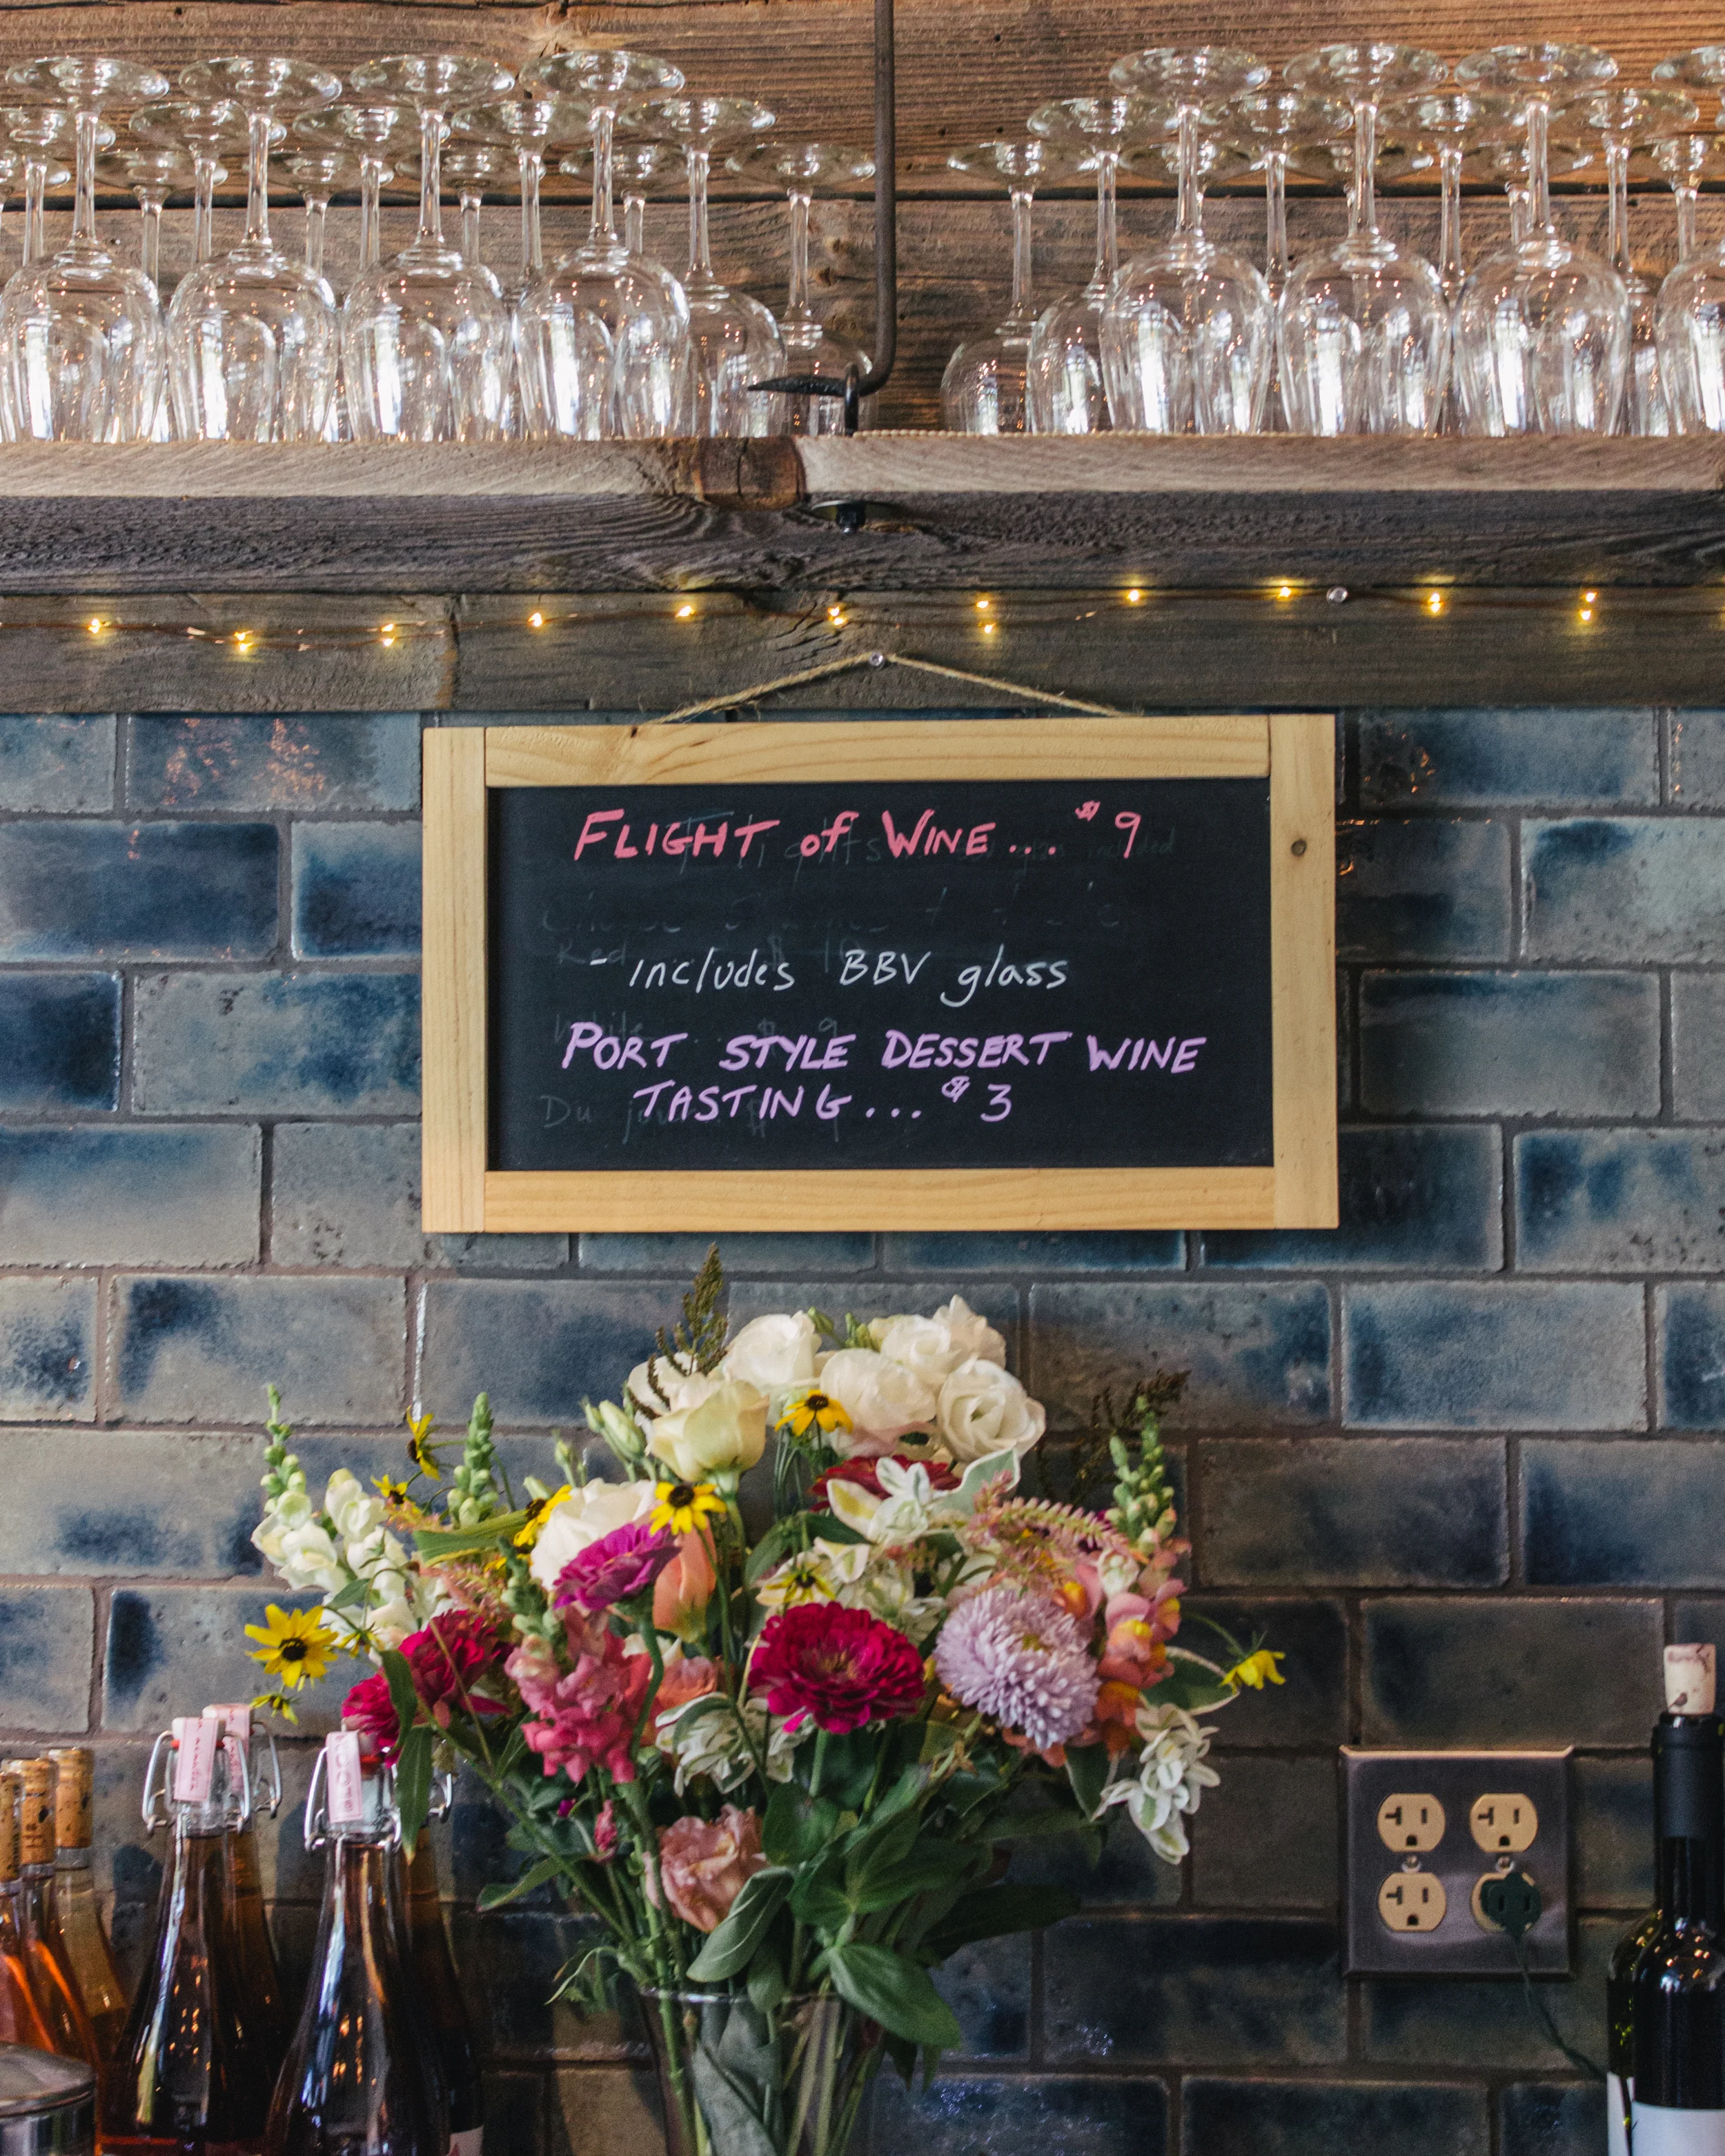 FLIGHT of WINE... $9
- includes BBV glass
PORT STYLE DESSERT WINE
TASTING... $3